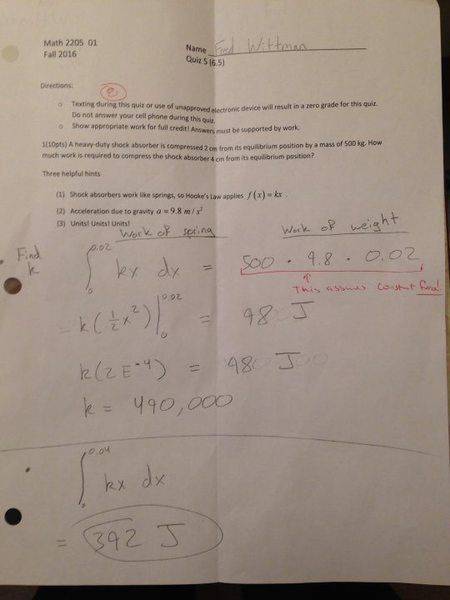 Math 2205 01
Fall 2016
Name Fred Wittman
Quiz 5 (6.5)
Directions:
o Texting during this quiz or use of unapproved electronic device will result in a zero grade for this quiz.
Do not answer your cell phone during this quiz.
o Show appropriate work for full credit! Answers must be supported by work.
1(10pts) A heavy-duty shock absorber is compressed 2 cm from its equilibrium position by a mass of 500 kg. How
much work is required to compress the shock absorber 4 cm from its equilibrium position?
Three helpful hints
(1) Shock absorbers work like springs, so Hooke's Law applies f(x) = kx .
(2) Acceleration due to gravity a = 9.8 m/s²
(3) Units! Units! Units!
Work of spring Work of weight
• Find k ∫₀^0.02 kx dx = 500 · 9.8 · 0.02
↑ This assumes constant force!
= k(½x²)|₀^0.02 = 98 J
k(2E^-4) = 98 J
k = 490,000
• ∫₀^0.04 kx dx
= 392 J